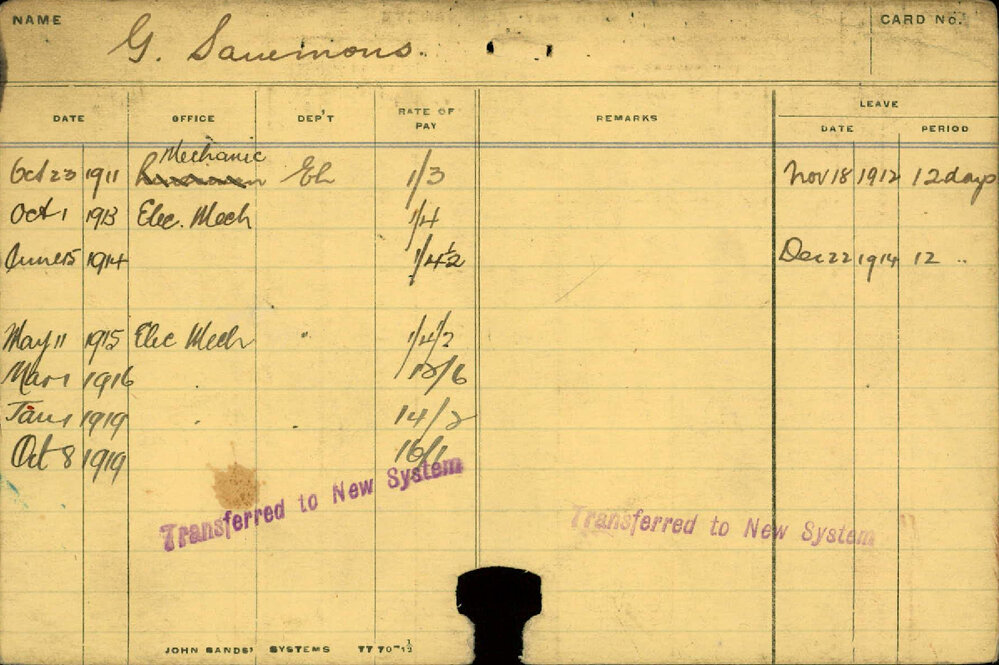 NAME G. Sauemons. CARD No.
LEAVE
DATE OFFICE DEP'T RATE OF PAY REMARKS DATE PERIOD
Mechanic
Oct 23 1911 El 1/3 Nov 18 1912 12 days
Oct 1 1913 Elec. Mech 1/4
June 15 1914 1/4½ Dec 22 1914 12 "
May 11 1915 Elec Mech " 1/4½
Mar 1 1916 12/6
Jan 1 1919 " " 14/2
Oct 8 1919 16/1
Transferred to New System
Transferred to New System
JOHN SANDS' SYSTEMS